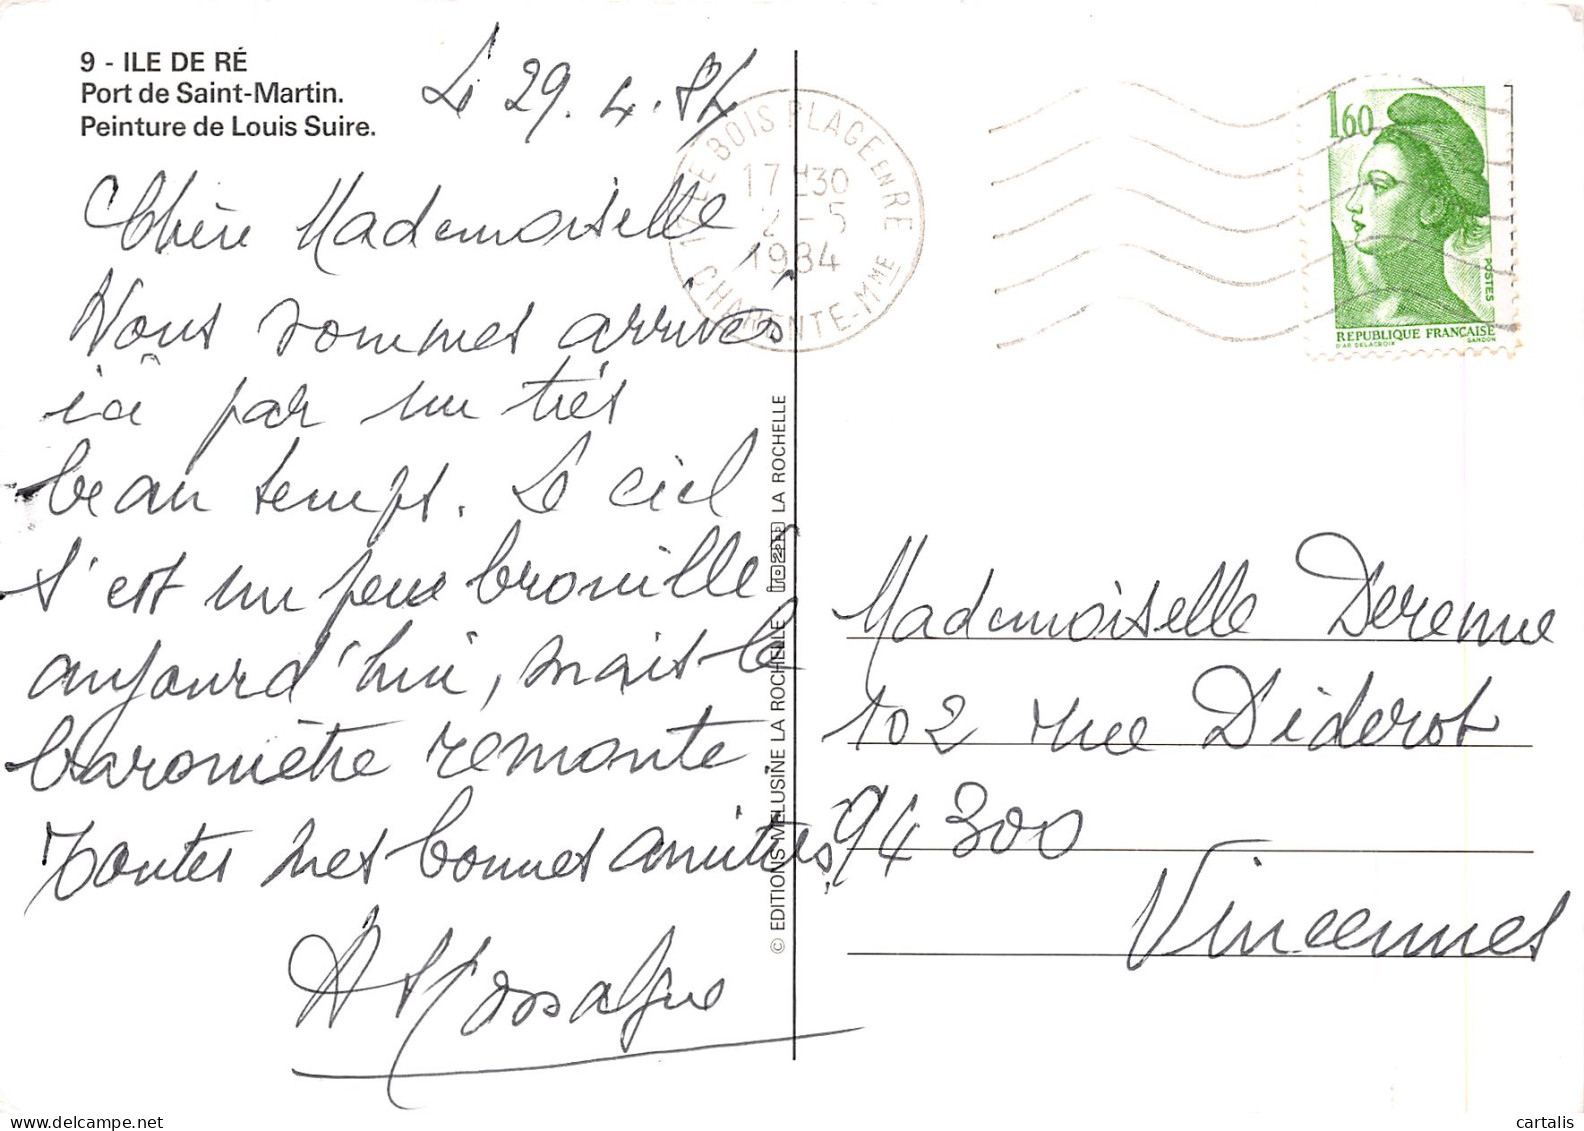 9 - ILE DE RÉ
Port de Saint-Martin.
Peinture de Louis Suire.
Le 29.4.84
Chère Mademoiselle
Nous sommes arrivés
ici par un très
beau temps. Le ciel
s'est un peu brouillé
aujourd'hui, mais le
baromètre remonte
Toutes nos bonnes amitiés,
© EDITIONS MELUSINE LA ROCHELLE LA ROCHELLE
17 H30
2 - 5
1984
LE BOIS PLAGE EN RE
CHARENTE-MME
1,60
POSTES
REPUBLIQUE FRANÇAISE
D'AP. DELACROIX GANDON
Mademoiselle Derenne
102 rue Diderot
94300
Vincennes
cartalis